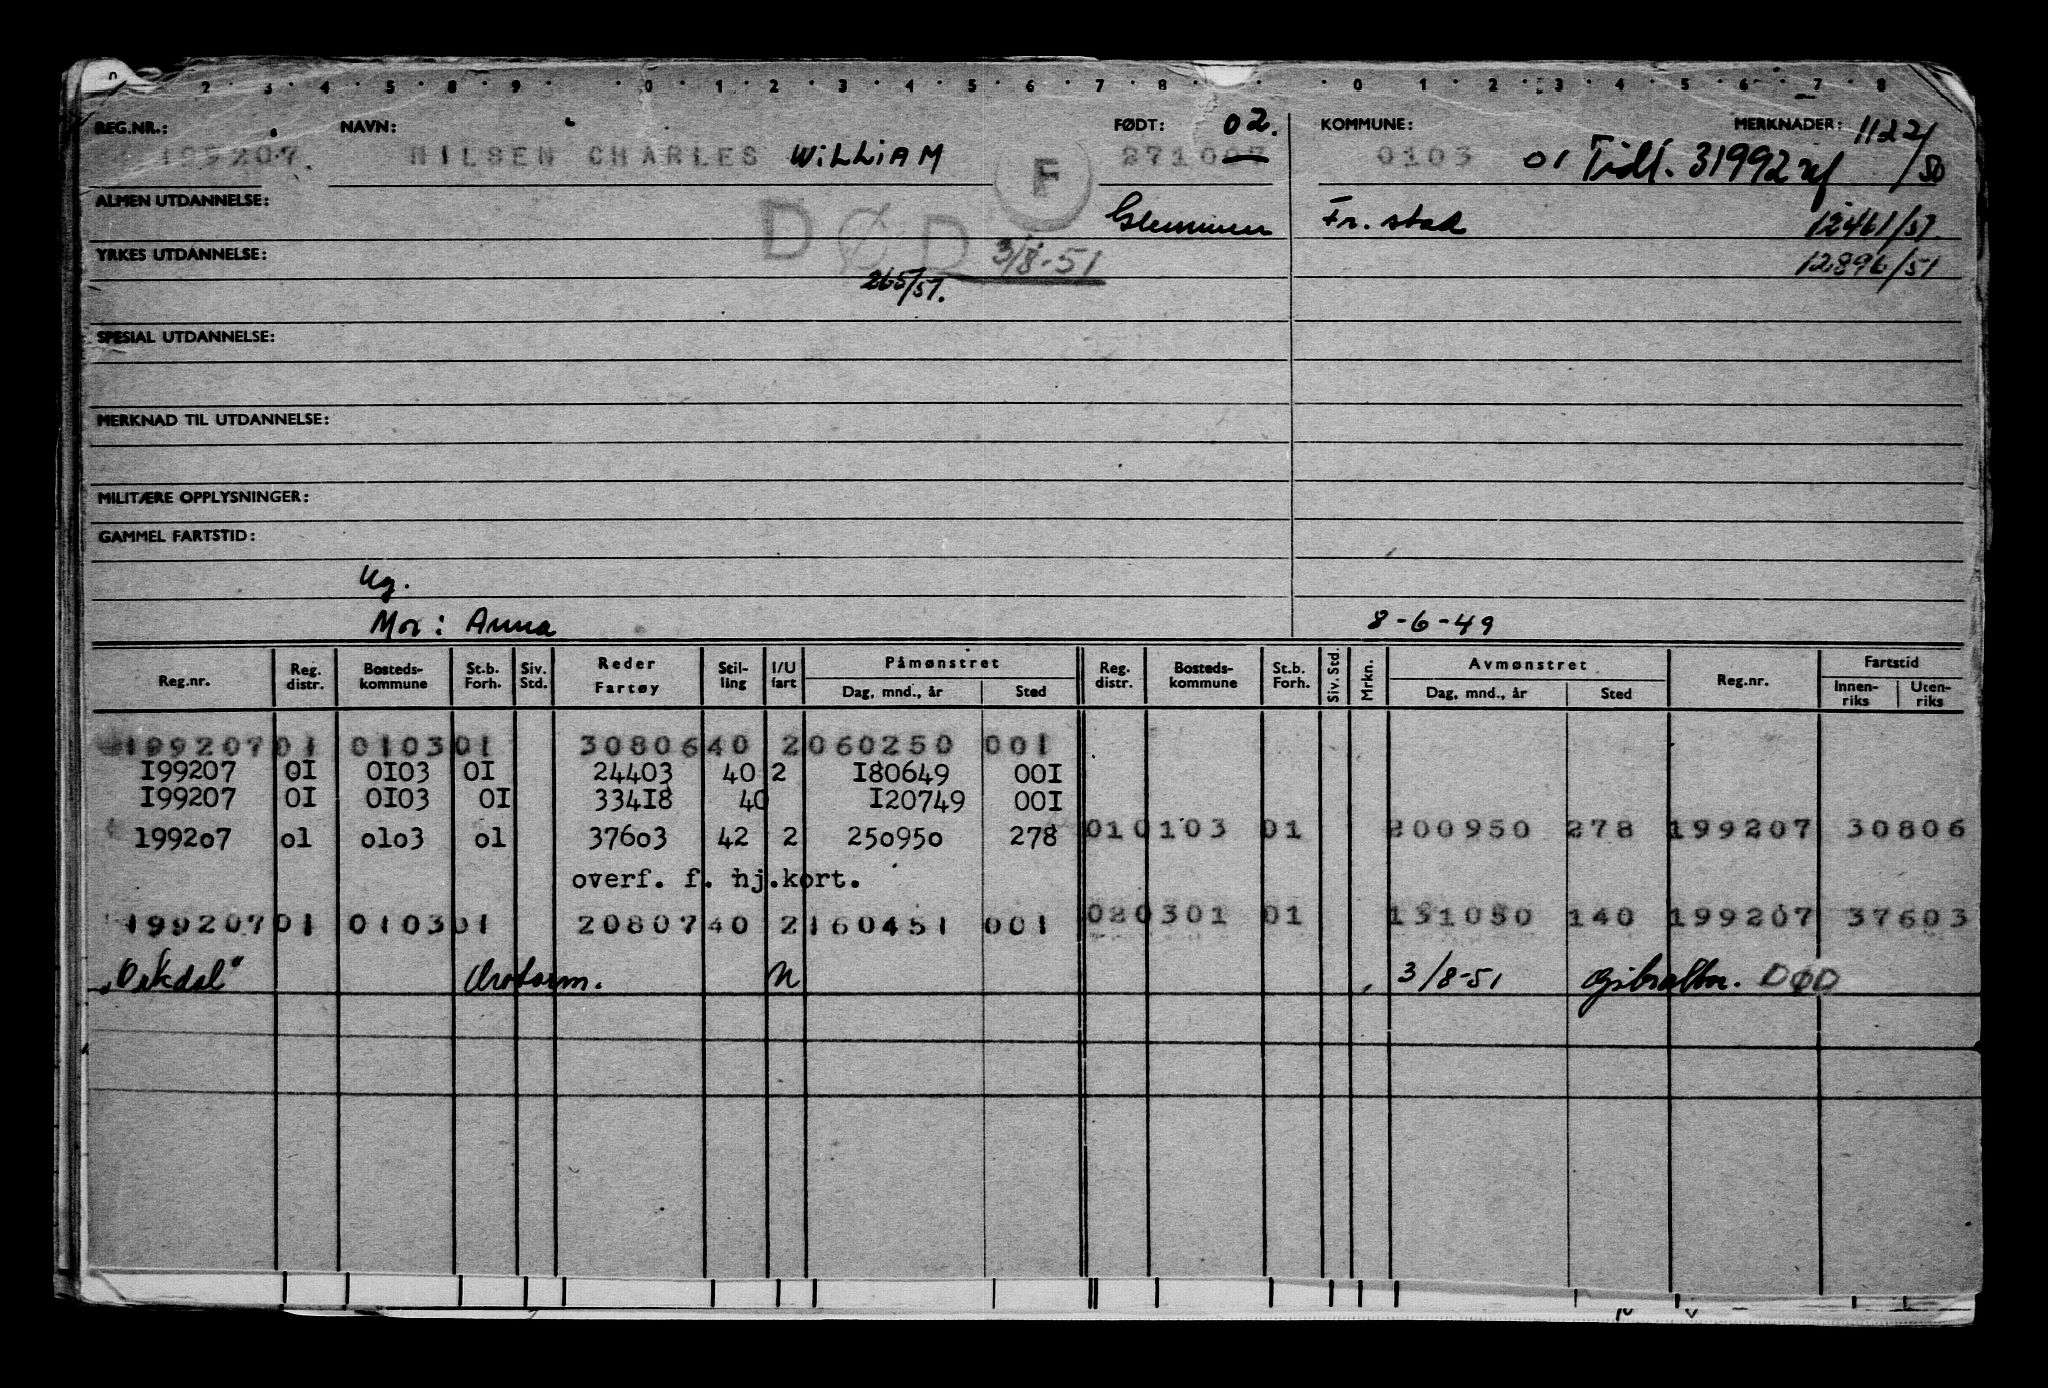 2 3 4 5 8 9 0 1 2 3 4 5 6 7 8 0 1 2 3 4 5 6 7 8
REG.NR.: NAVN: FØDT: 02. KOMMUNE: MERKNADER: 1122/50
199207 NILSEN CHARLES WILLIAM F 271007 0103 01 Tidl. 31992
ALMEN UTDANNELSE: Glemmen Fr. stad 12461/51
YRKES UTDANNELSE: DØD 3/8-51 12896/51
265/51.
SPESIAL UTDANNELSE:
MERKNAD TIL UTDANNELSE:
MILITÆRE OPPLYSNINGER:
GAMMEL FARTSTID:
Ug.
Mor: Anna 8-6-49
Reg.nr. Reg. distr. Bosteds-kommune St.b. Forh. Siv. Std. Reder Fartøy Stil-ling I/U fart Påmønstret Dag, mnd., år Sted Reg. distr. Bosteds-kommune St.b. Forh. Siv. Std. Mrkn. Avmønstret Dag, mnd., år Sted Reg.nr. Fartstid Innen-riks Uten-riks
199207 01 0103 01 30806 40 2 060250 001
I99207 0I 0I03 0I 24403 40 2 I80649 00I
I99207 0I 0I03 0I 334I8 40 I20749 00I
1992o7 o1 o1o3 o1 376o3 42 2 25o95o 278 01 0103 01 200950 278 199207 30806
overf. f. hj.kort.
199207 01 0103 01 20807 40 2 160451 001 02 0301 01 131050 140 199207 37603
"Orkdal" U 3/8-51 Gibraltar. DØD